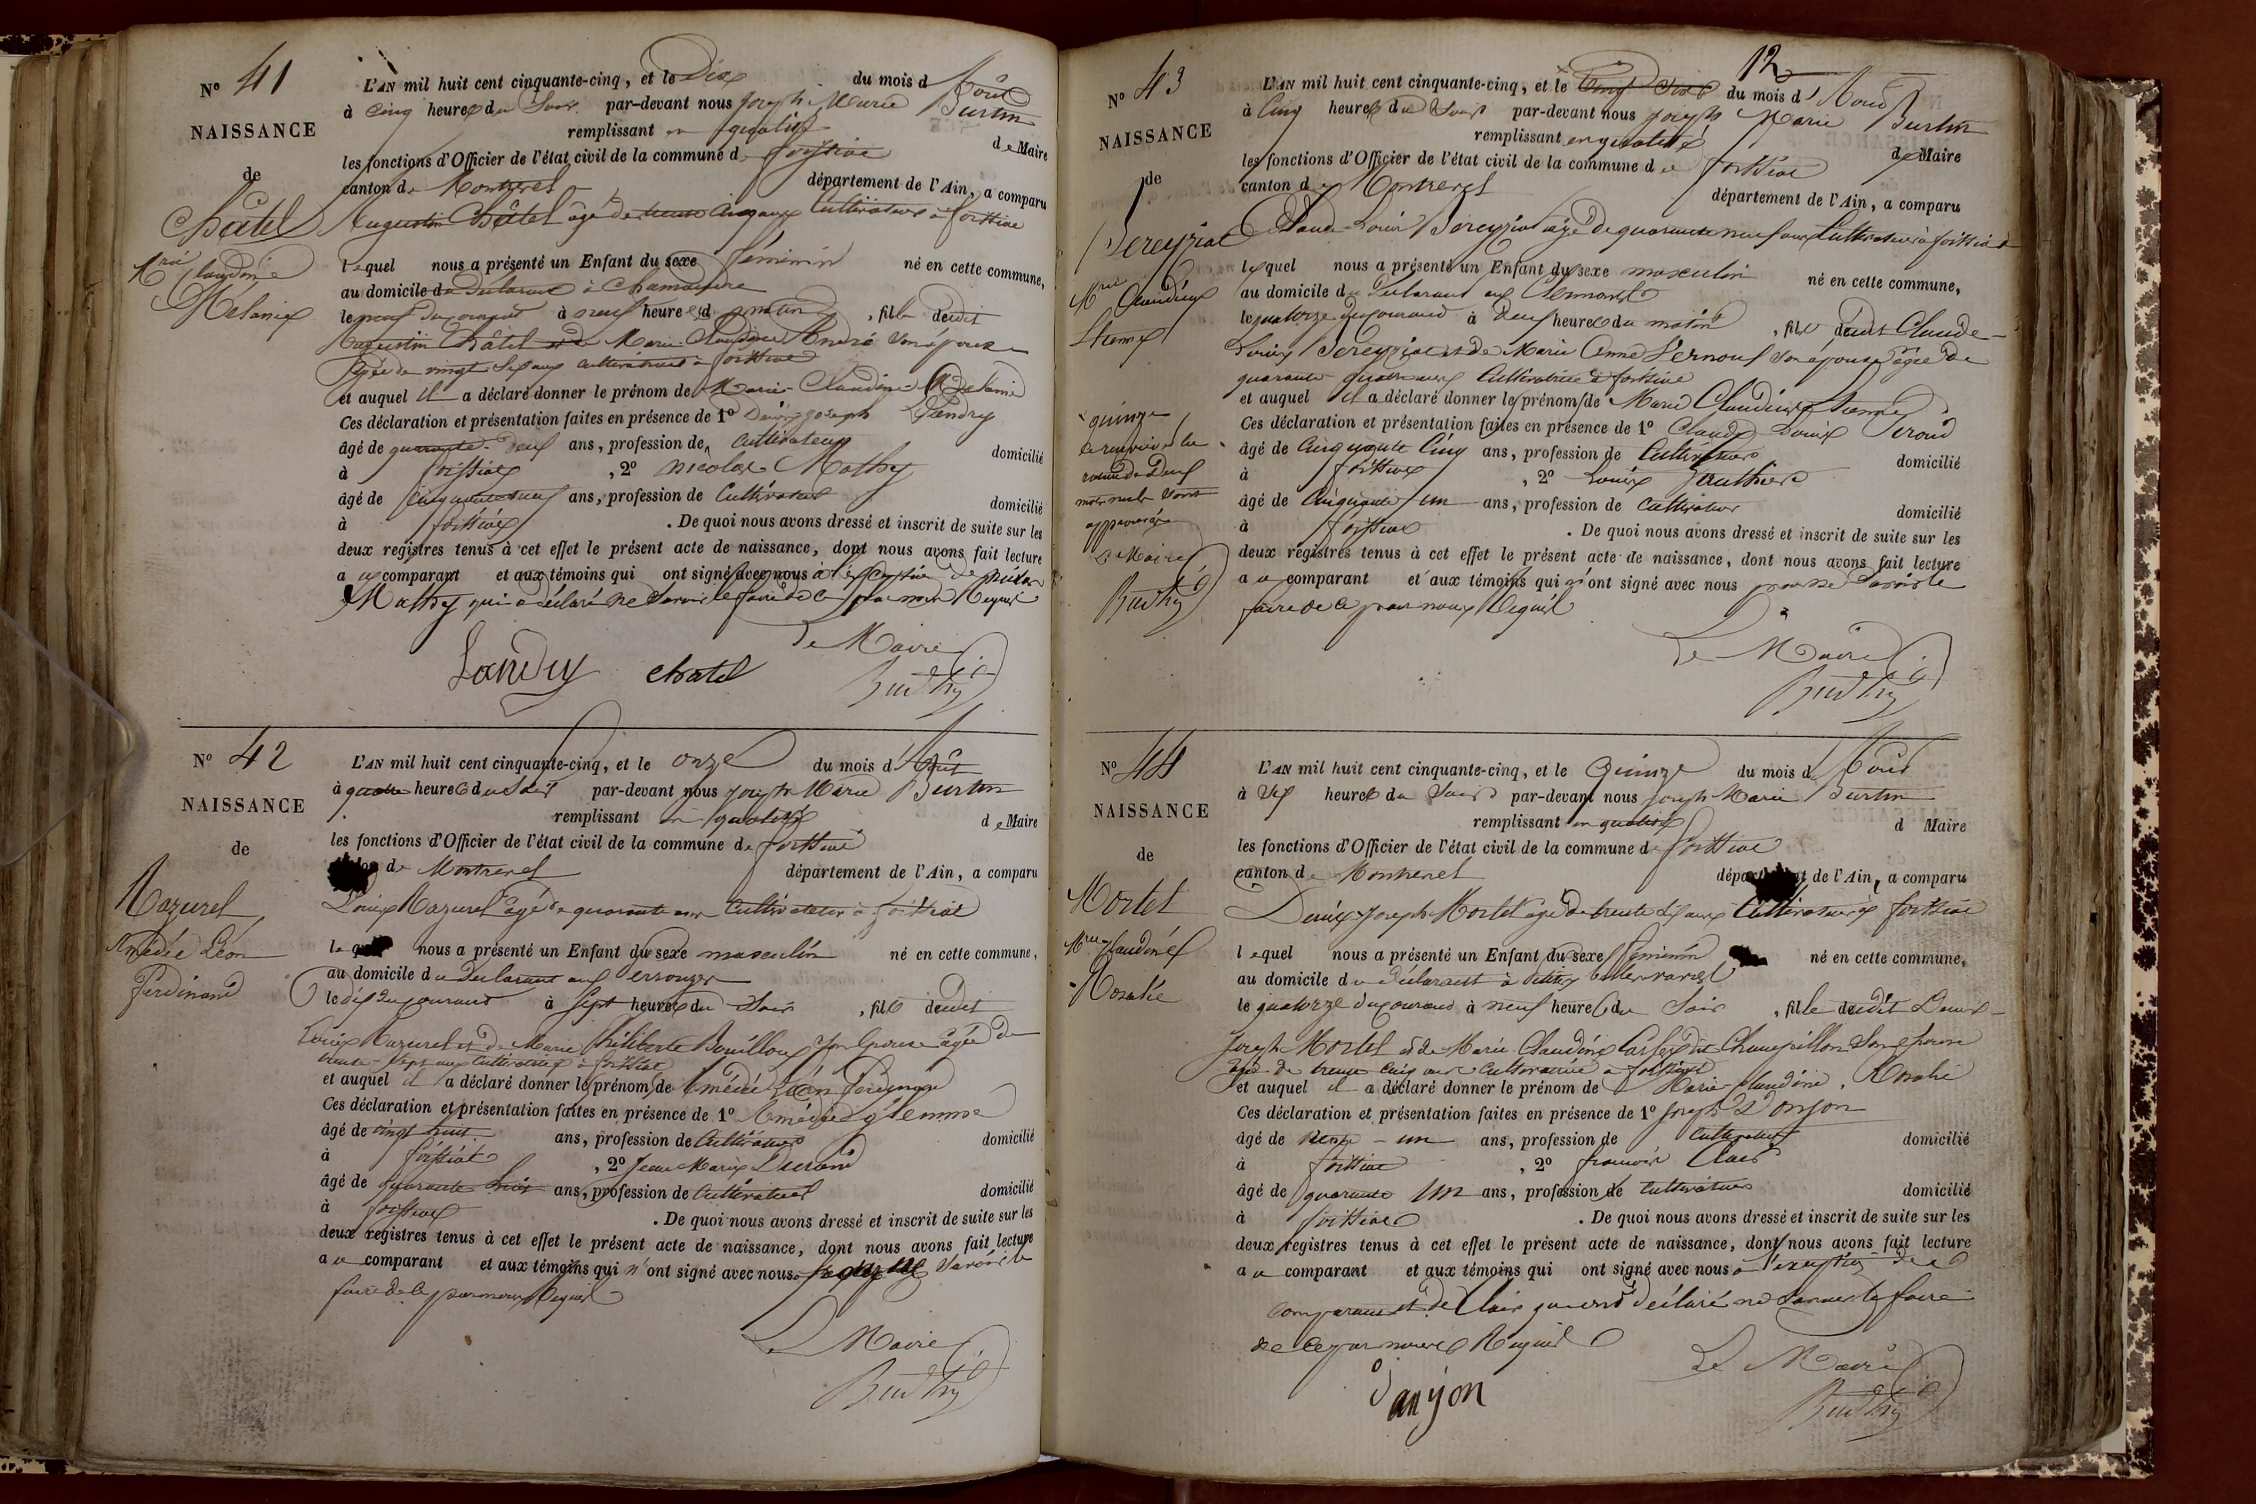 N° 41
NAISSANCE
de
Châtel
Mrie Claudine
Melanie
L'AN mil huit cent cinquante-cinq, et le Dix du mois d'Août
à cinq heures du Soir par-devant nous Joseph Marie Burtin
remplissant en qualité de Maire
les fonctions d'Officier de l'état civil de la commune de foissiat
canton de Montrevel département de l'Ain, a comparu
Augustin Châtel âgé de trente cinq ans Cultivateur à foissiat
lequel nous a présenté un Enfant du sexe féminin né en cette commune,
au domicile du Declarant à Chamandre
le neuf du courant à neuf heures du matin, fille dudit
Augustin Châtel et de Marie Claudine André Son épouse
âgée de vingt Six ans cultivatrice à foissiat
et auquel il a déclaré donner le prénom de Marie Claudine Melanie
Ces déclaration et présentation faites en présence de 1° Denis Joseph Landry
âgé de quarante Deux ans, profession de Cultivateur domicilié
à foissiat, 2° nicolas Mathy
âgé de cinquante neuf ans, profession de Cultivateur domicilié
à foissiat. De quoi nous avons dressé et inscrit de suite sur les
deux registres tenus à cet effet le présent acte de naissance, dont nous avons fait lecture
au comparant et aux témoins qui ont signé avec nous à l'exception de
Mathy qui a déclaré ne Savoir le faire de ce par nous Requis
Le Maire
Landry chatel Burtin
N° 42
NAISSANCE
de
Mazuret
Amédée Léon
Ferdinand
L'AN mil huit cent cinquante-cinq, et le onze du mois d'Août
à quatre heures du Soir par-devant nous Joseph Marie Burtin
remplissant en qualité de Maire
les fonctions d'Officier de l'état civil de la commune de foissiat
canton de Montrevel département de l'Ain, a comparu
Louis Mazuret âgé de quarante ans Cultivateur à foissiat
lequel nous a présenté un Enfant du sexe masculin né en cette commune,
au domicile du Declarant aux
le dix du courant à Sept heures du Soir, fils dudit
Louis Mazuret et de Marie Philiberte Bouilloux Son épouse âgée de
trente-Sept ans Cultivatrice à foissiat
et auquel il a déclaré donner le prénom de Amédée Léon Ferdinand
Ces déclaration et présentation faites en présence de 1° Amédée
âgé de vingt huit ans, profession de Cultivateur domicilié
à foissiat, 2° Jean Marie Durand
âgé de quarante trois ans, profession de Cultivateur domicilié
à foissiat. De quoi nous avons dressé et inscrit de suite sur les
deux registres tenus à cet effet le présent acte de naissance, dont nous avons fait lecture
au comparant et aux témoins qui n'ont signé avec nous Savoir le
faire de ce par nous Requis
Le Maire
Burtin
12
N° 43
NAISSANCE
de
Pereyziat
Mrie Claudius
Etienne
L'AN mil huit cent cinquante-cinq, et le du mois d'Août
à Cinq heures du Soir par-devant nous Joseph Marie Burtin
remplissant en qualité de Maire
les fonctions d'Officier de l'état civil de la commune de foissiat
canton de Montrevel département de l'Ain, a comparu
Claude Louis Pereyziat âgé de quarante neuf ans Cultivateur à foissiat
lequel nous a présenté un Enfant du sexe masculin né en cette commune,
au domicile du Declarant aux
le quatorze du courant à Deux heures du matin, fils dudit Claude
Louis Pereyziat et de Marie Anne Pernoud Son épouse âgée de
quarante quatre ans Cultivatrice à foissiat
et auquel il a déclaré donner le prénom de Marie Claudius Etienne
Ces déclaration et présentation faites en présence de 1° Claude Louis
âgé de Cinquante Cinq ans, profession de Cultivateur domicilié
à foissiat, 2° Louis Gauthier
âgé de Cinquante un ans, profession de Cultivateur domicilié
à foissiat. De quoi nous avons dressé et inscrit de suite sur les
deux registres tenus à cet effet le présent acte de naissance, dont nous avons fait lecture
au comparant et aux témoins qui n'ont signé avec nous pour ne Savoir le
faire de ce par nous Requis
quinze
le renvoi et la
rature de Deux
mots nuls sont
approuvés
Le Maire
Burtin
Le Maire
Burtin
N° 44
NAISSANCE
de
Mortel
Mrie Claudine
Rosalie
L'AN mil huit cent cinquante-cinq, et le Quinze du mois d'Août
à Six heures du Soir par-devant nous Joseph Marie Burtin
remplissant en qualité d Maire
les fonctions d'Officier de l'état civil de la commune de foissiat
canton de Montrevel département de l'Ain, a comparu
Denis Joseph Mortel âgé de trente Six ans Cultivateur à foissiat
lequel nous a présenté un Enfant du sexe féminin né en cette commune,
au domicile du déclarant à
le quatorze du courant à neuf heures du Soir, fille dudit Denis
Joseph Mortel et de Marie Claudine dit Chaupillon Son épouse
âgée de trente cinq ans Cultivatrice à foissiat
et auquel il a déclaré donner le prénom de Marie Claudine Rosalie
Ces déclaration et présentation faites en présence de 1° Joseph Donjon
âgé de trente-un ans, profession de Cultivateur domicilié
à foissiat, 2° francois Clair
âgé de quarante un ans, profession de Cultivateur domicilié
à foissiat. De quoi nous avons dressé et inscrit de suite sur les
deux registres tenus à cet effet le présent acte de naissance, dont nous avons fait lecture
au comparant et aux témoins qui ont signé avec nous à l'exception du
comparant et de Clair qui ont déclaré ne Savoir le faire
de ce par nous Requis
Le Maire
Danjon Burtin